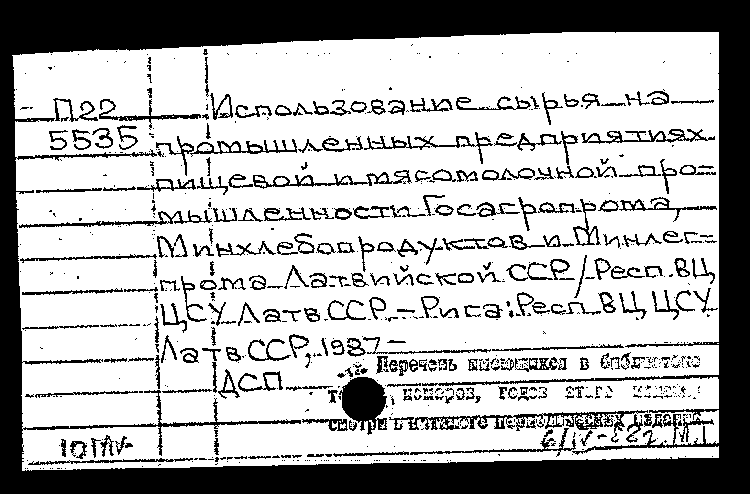 П22 Использование сырья на
5535 промышленных предприятиях
пищевой и мясомолочной про-
мышленности Госагропрома,
Минхлебопродуктов и Минлег-
прома Латвийской ССР/Респ.ВЦ
ЦСУ Латв.ССР.-Рига:Респ.ВЦ ЦСУ
Латв ССР, 1987-
Перечень имеющихся в библиотеке
ДСП
номеров, годов этого
смотри в каталоге периодических издании
6/IV-